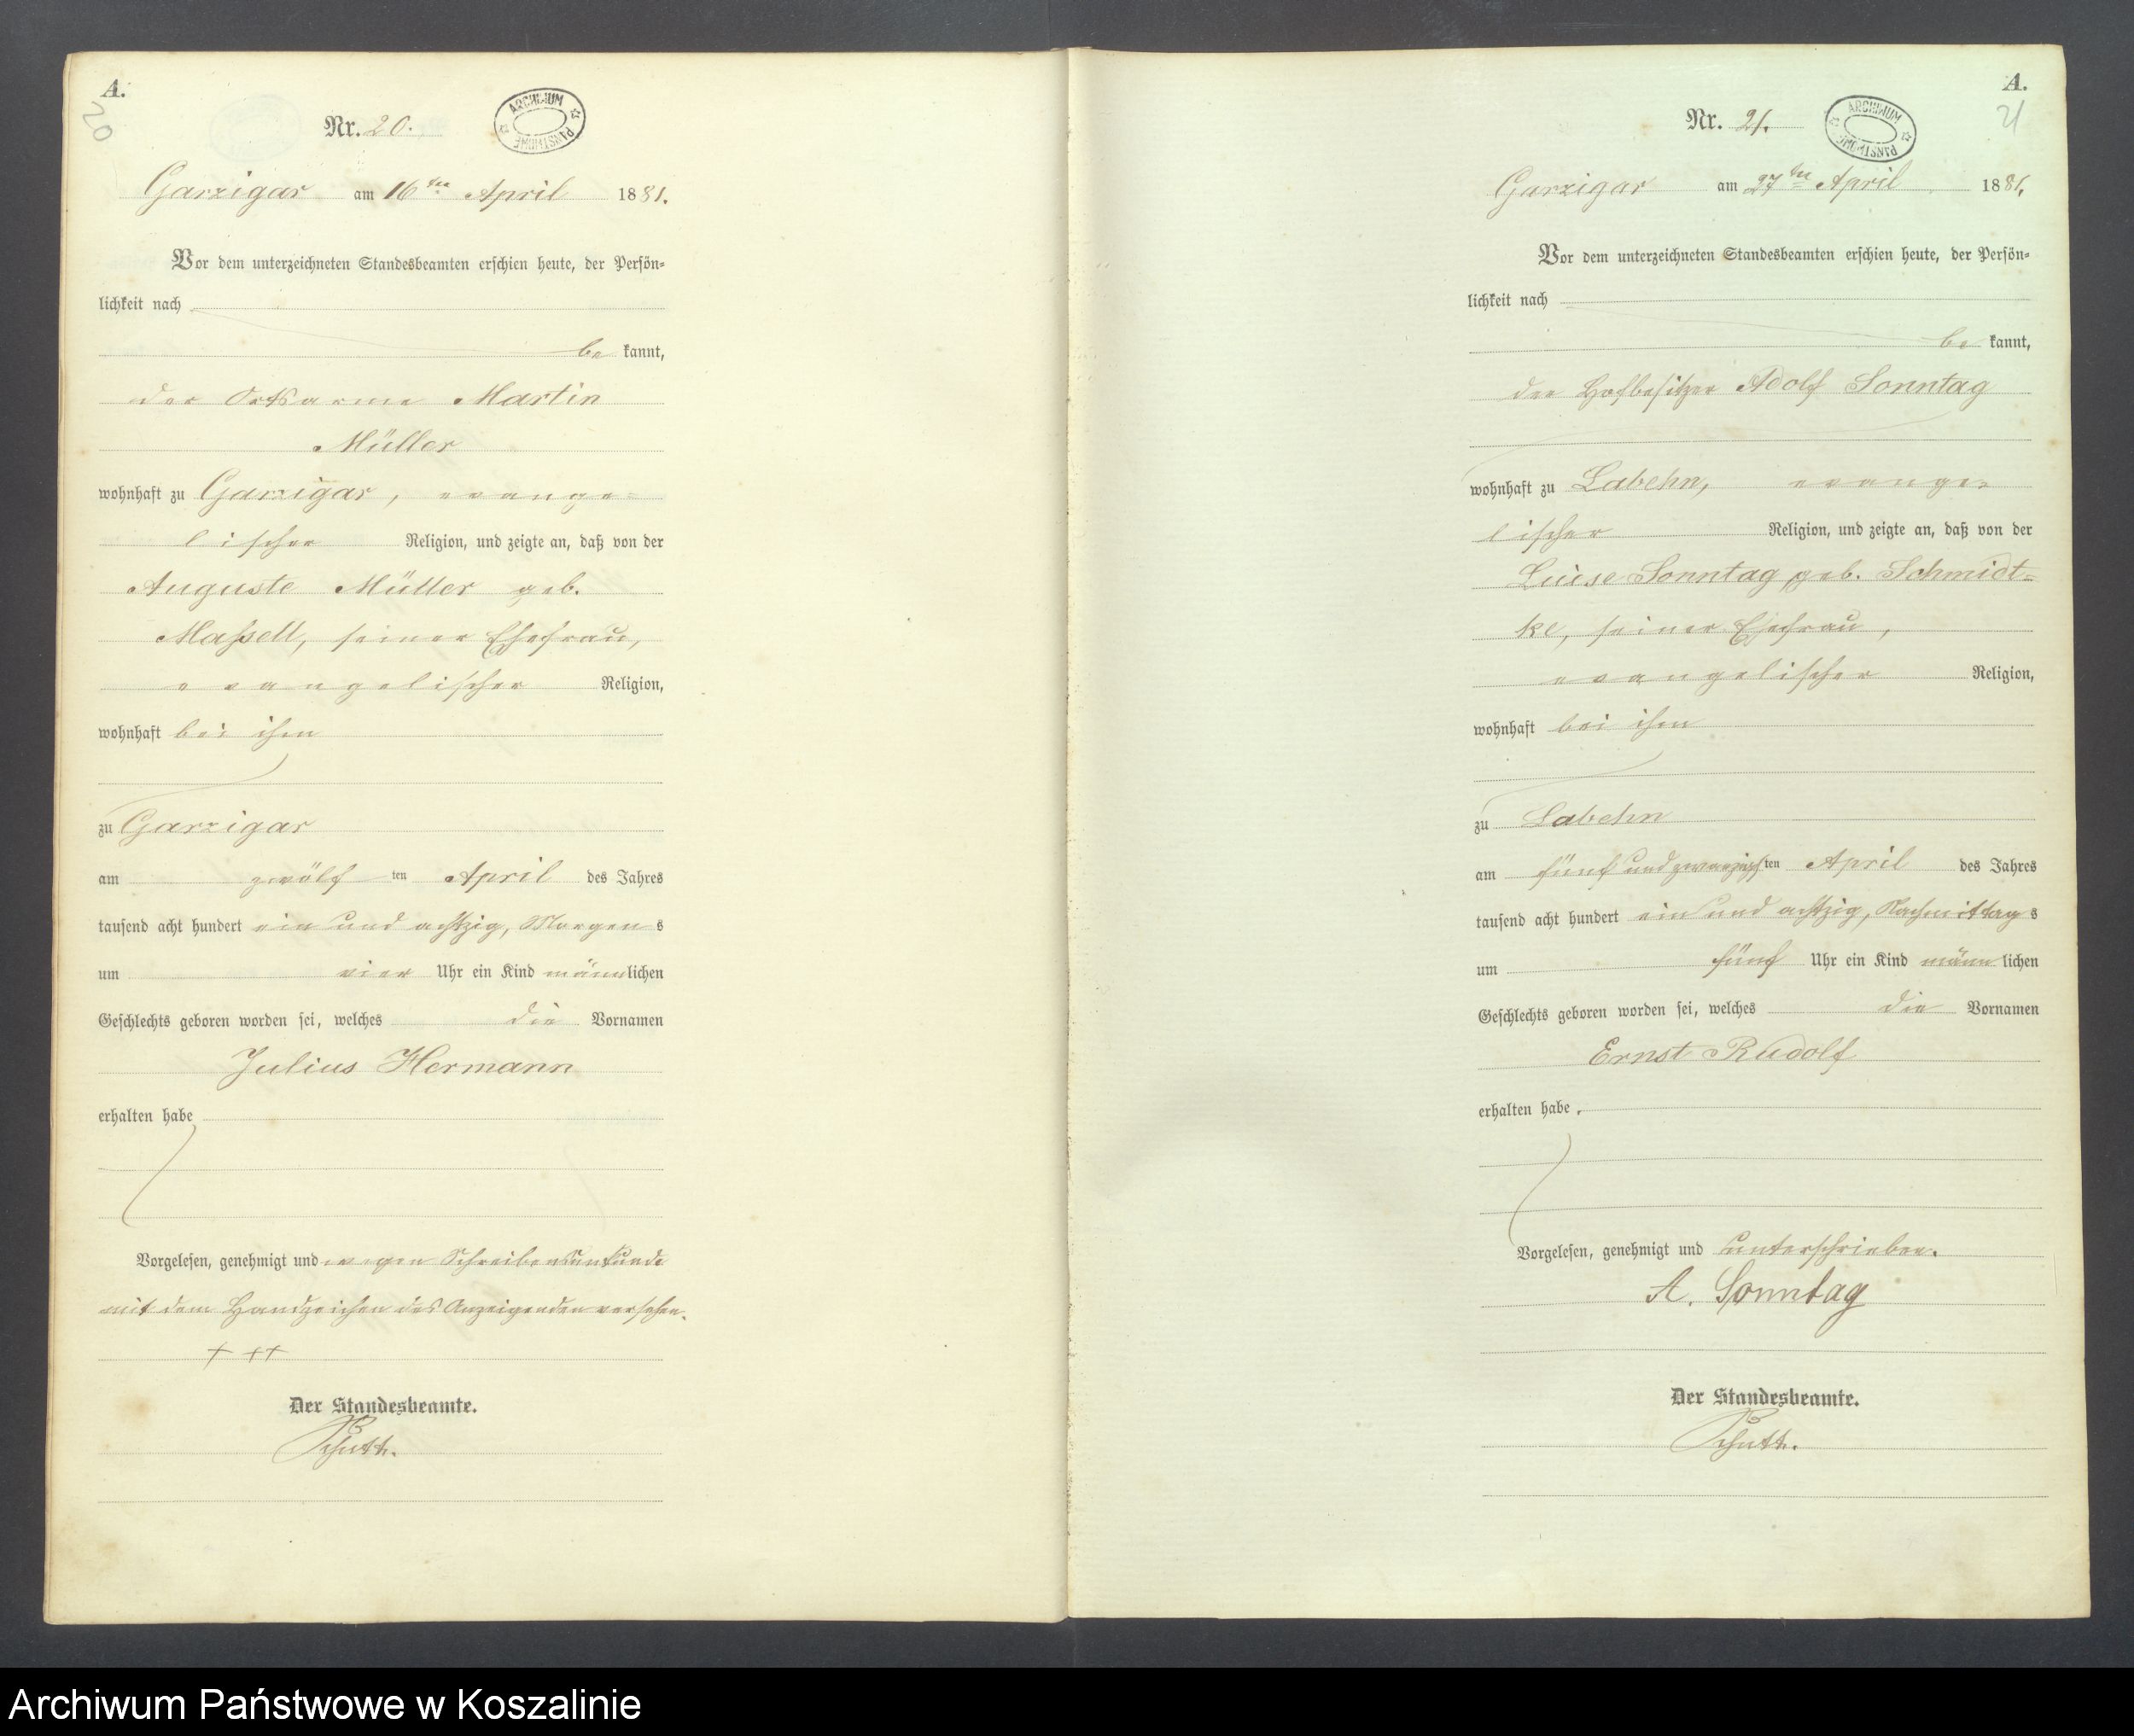 A.
20
Nr. 20.
ARCHIWUM PAŃSTWOWE
Garzigar am 16ten April 1881.
Vor dem unterzeichneten Standesbeamten erschien heute, der Persön-
lichkeit nach
be kannt,
der Ortsarme Martin
Müller
wohnhaft zu Garzigar, evange-
lischer Religion, und zeigte an, daß von der
Auguste Müller geb.
Maßell, seiner Ehefrau,
evangelischer Religion,
wohnhaft bei ihm
zu Garzigar
am zwölf ten April des Jahres
tausend acht hundert ein und achtzig, Morgen s
um vier Uhr ein Kind männlichen
Geschlechts geboren worden sei, welches die Vornamen
Julius Hermann
erhalten habe
Vorgelesen, genehmigt und wegen Schreibensunkunde
mit dem Handzeichen des Anzeigenden versehen.
+ ++
Der Standesbeamte.
A.
21
Nr. 21.
ARCHIWUM PAŃSTWOWE
Garzigar am 27ten April 1881.
Vor dem unterzeichneten Standesbeamten erschien heute, der Persön-
lichkeit nach
be kannt,
der Hofbesitzer Adolf Sonntag
wohnhaft zu Labehn, evange-
lischer Religion, und zeigte an, daß von der
Luise Sonntag geb. Schmidt-
ke, seiner Ehefrau,
evangelischer Religion,
wohnhaft bei ihm
zu Labehn
am fünf und zwanzigsten April des Jahres
tausend acht hundert ein und achtzig, Nachmittag s
um fünf Uhr ein Kind männ lichen
Geschlechts geboren worden sei, welches die Vornamen
Ernst Rudolf
erhalten habe.
Vorgelesen, genehmigt und unterschrieben.
A. Sonntag
Der Standesbeamte.
Archiwum Państwowe w Koszalinie